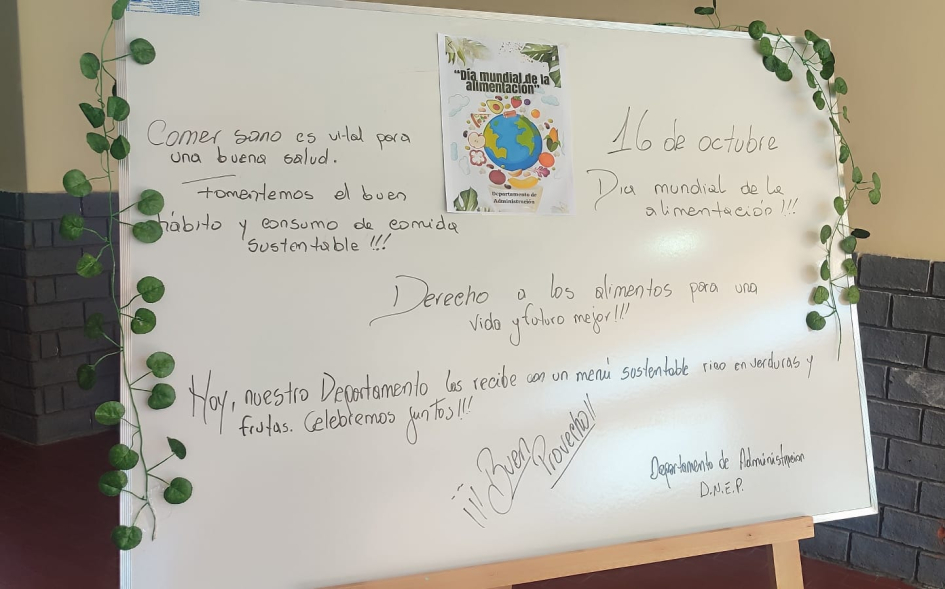 Comer sano es vital para
una buena salud.
Fomentemos el buen
hábito y consumo de comida
sustentable !!!
"Día mundial de la
alimentación"
Departamento de
Administración
16 de octubre
Dia mundial de la
alimentación !!!
Derecho a los alimentos para una
vida y futuro mejor!!!
Hoy, nuestro Departamento las recibe con un menú sustentable rico en verduras y
frutas. Celebremos juntos!!!
¡¡¡Buen Provecho!!
Departamento de Administracion
D.N.E.P.